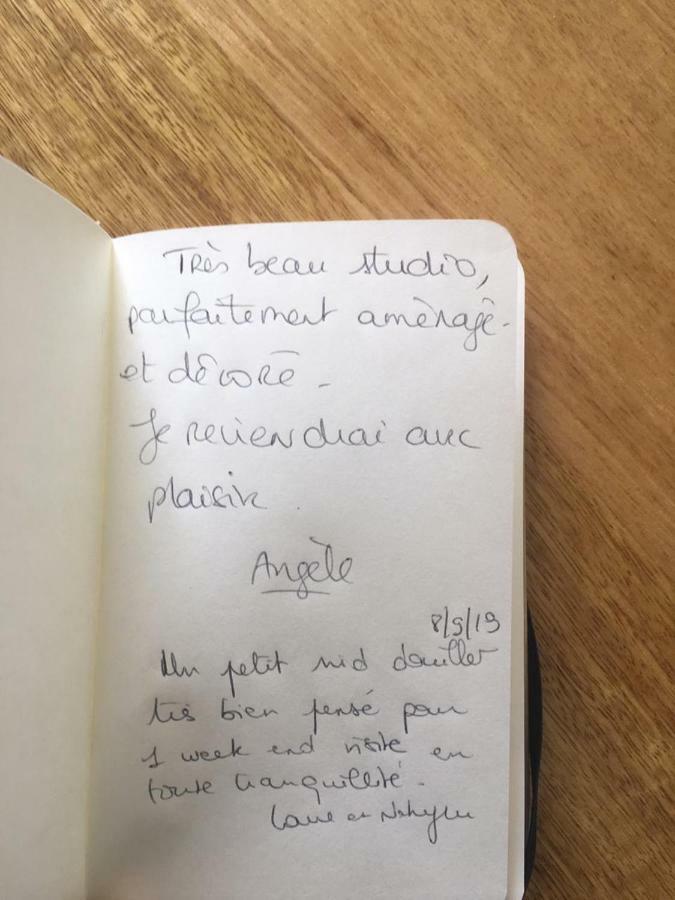 Très beau studio,
parfaitement aménagé
et décoré -
Je reviendrai avec
plaisir.
Angèle
8/9/19
Un petit nid douillet
très bien pensé pour
1 week end visite en
toute tranquillité.
et